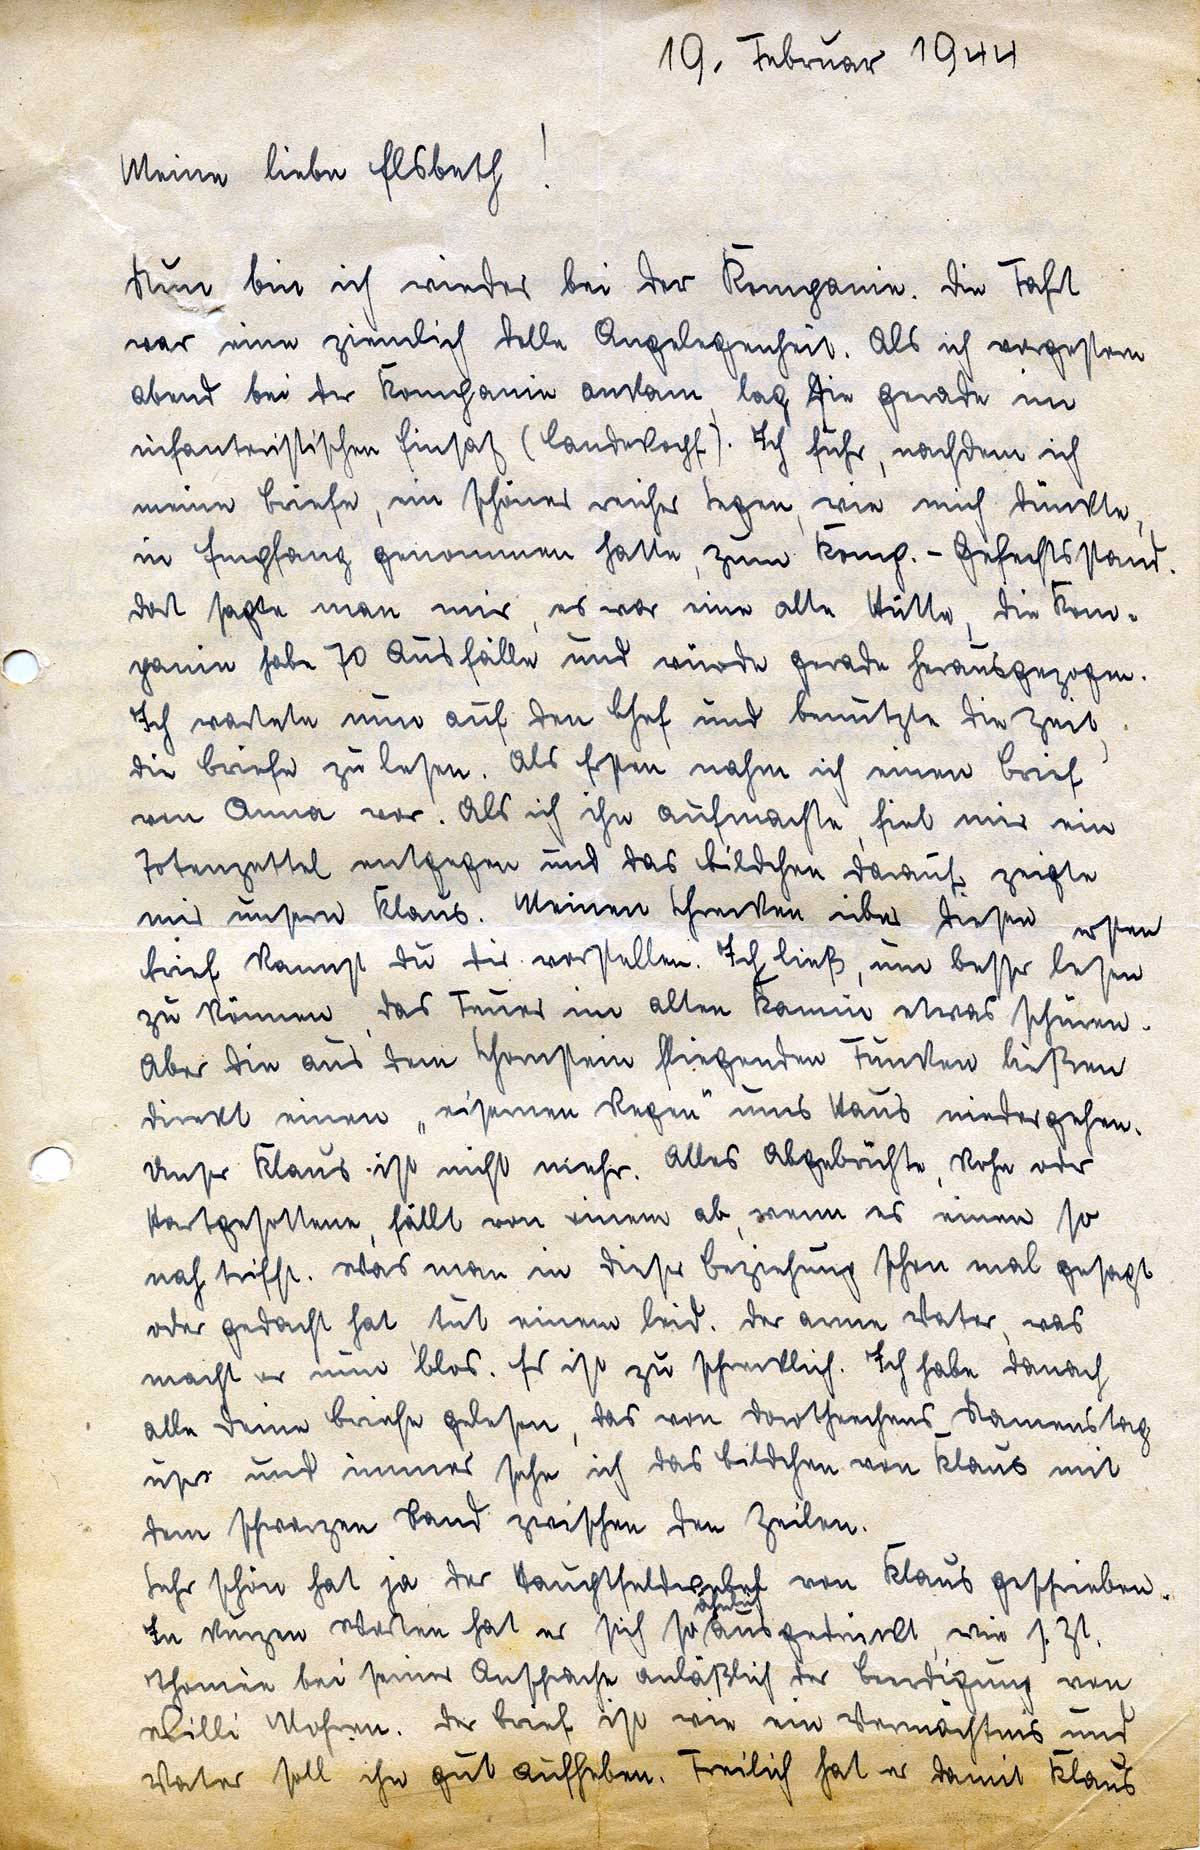 19. Februar 1944
Meine liebe Elsbeth!
Nun bin ich wieder bei der Kompanie. Die Fahrt
war eine ziemlich tolle Angelegenheit. Als ich vorgestern
abend bei der Kompanie ankam, lag sie gerade im
infantristischen Einsatz (Landekopf). Ich fuhr, nachdem ich
meine Briefe, ein schöner reicher Segen, wie mich dünkte,
in Empfang genommen hatte, zum Komp.-Gefechtsstand.
Dort sagte man mir, es war eine alte Hütte, die Kom-
panie habe 70 Ausfälle und würde gerade herausgezogen.
Ich wartete nun auf den Chef und benutzte die Zeit,
die Briefe zu lesen. Als Ersten nahm ich einen Brief
von Anna vor. Als ich ihn aufmachte, fiel mir ein
Totenzettel entgegen und das Bildchen darauf zeigte
mir unsern Klaus. Meinen Schrecken über diesen ersten
Brief kannst Du Dir vorstellen. Ich ließ, um besser lesen
zu können, das Feuer im alten Kamin etwas schüren.
Aber die aus dem Schornstein fliegenden Funken ließen
direkt einen „eisernen Regen" ums Haus niedergehen.
Unser Klaus ist nicht mehr. Alles Abgebrühte, Rohe oder
Hartgesottene, fällt von einem ab, wenn es einen so
nah trifft. Was man in dieser Beziehung schon mal gesagt
oder gedacht hat, tut einem leid. Der arme Vater, was
macht er nun blos. Es ist zu schrecklich. Ich habe danach
alle Deine Briefe gelesen, das von Dorotheechens Namenstag
usw und immer sehe ich das Bildchen von Klaus mit
dem schwarzen Band zwischen den Zeilen.
Sehr schön hat ja der Hauptfeldwebel von Klaus geschrieben.
In kurzen Worten hat er sich so ähnlich ausgedrückt, wie s. Zt.
Thomée bei seiner Ansprache anläßlich der Beerdigung von
Willi Mohren. Der Brief ist wie ein Vermächtnis und
Vater soll ihn gut aufheben. Freilich hat er damit Klaus